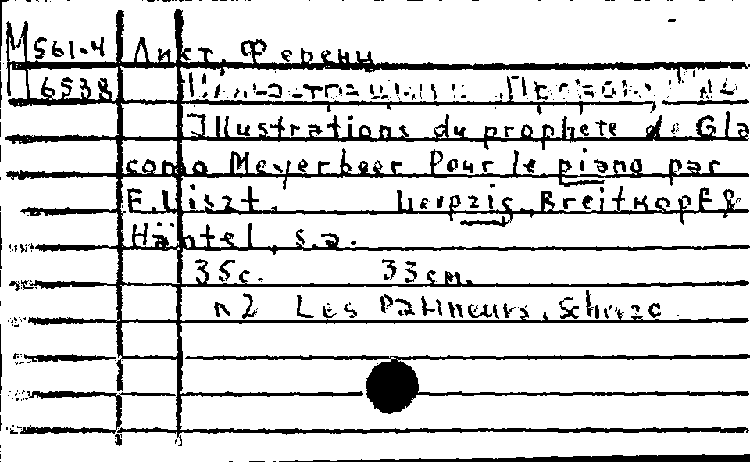 М 561-4 Лист, Ференц
6538
Illustrations du prophete de Gia
como Meyerbeer Pour le piano par
F. Liszt. Leipzig, Breitkopf &
Häntel, s.a.
35с. 33см.
n2 Les Patineurs, Scherzo